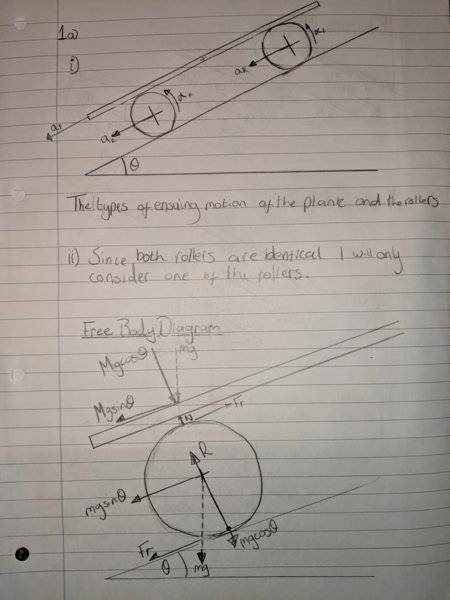 1a)
i)
α₂
a₂
α₂
a₂
a₁
θ
The types of ensuing motion of the plank and the rollers
ii) Since both rollers are identical I will only
consider one of the rollers.
Free Body Diagram
Mgcosθ
mg
Mgsinθ
Fr
N
R
mgsinθ
mgcosθ
Fr
θ
mg